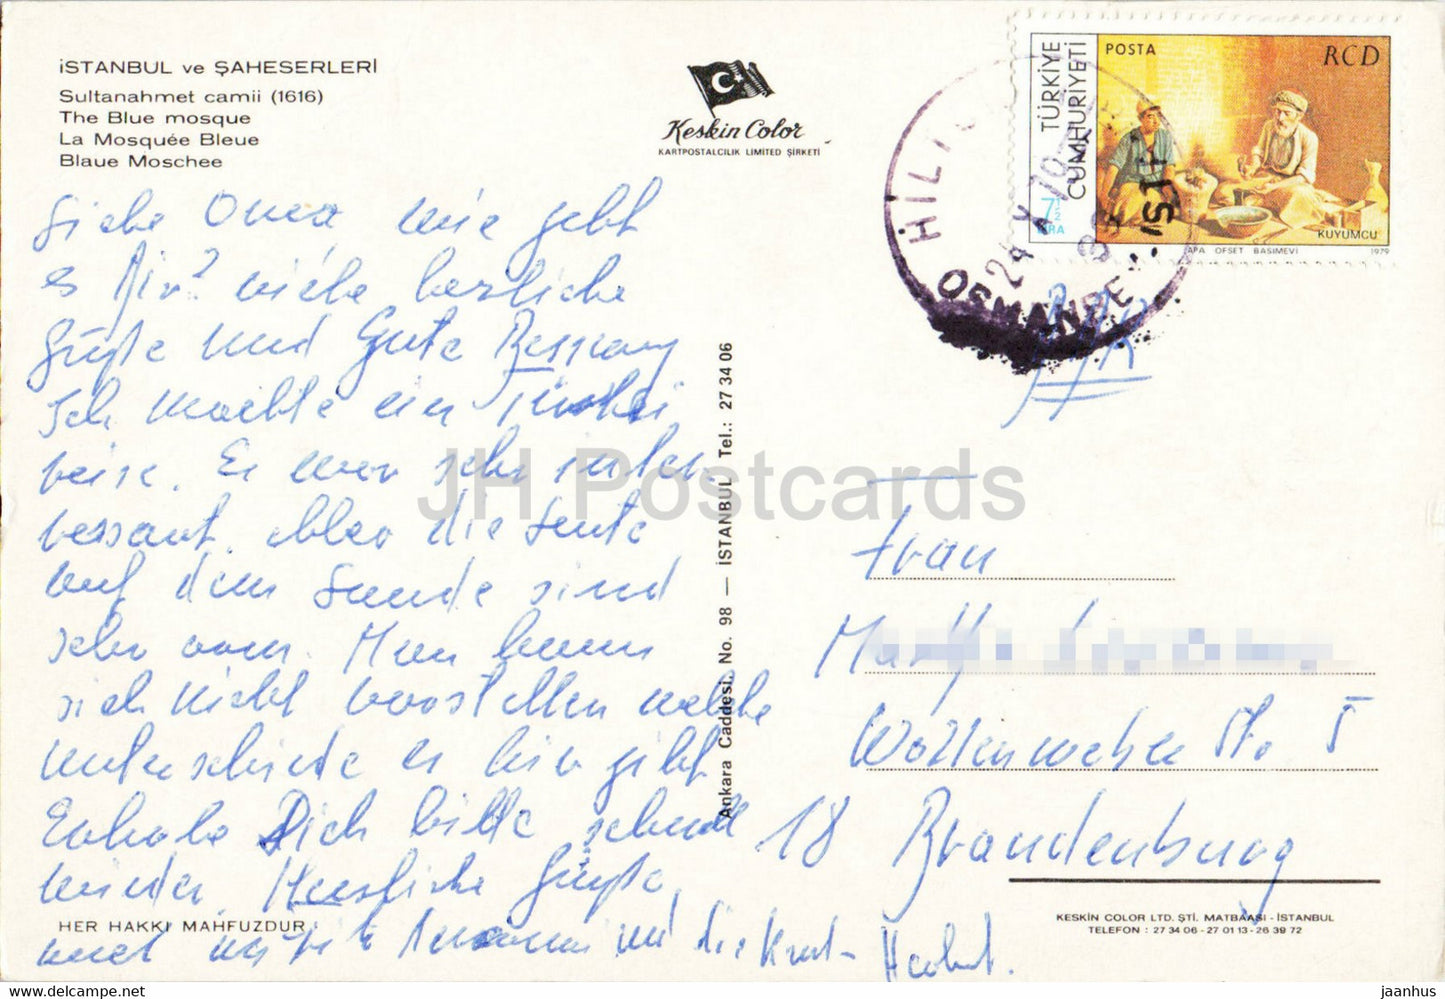 İSTANBUL ve ŞAHESERLERİ
Sultanahmet camii (1616)
The Blue mosque
La Mosquée Bleue
Blaue Moschee
Keskin Color
KARTPOSTALCILIK LIMITED ŞİRKETİ
TÜRKİYE
CUMHURİYETİ
POSTA
RCD
7½
LİRA
KUYUMCU
APA OFSET BASIMEVİ
1979
OSMANBE
İST
Liebe Oma, wie geht
es Dir? Viele herzliche
Grüße und Gute Besserung
Ich machte ein Türkei
reise. Es war sehr inter-
ressant. Aber die Leute
auf dem Lande sind
sehr arm. Man kann
sich nicht vorstellen welche
Unterschiede es hier gibt
Erhole Dich bitte schnell
wieder. Herzliche Grüße
und die
Ankara Caddesi, No. 98 — İSTANBUL Tel.: 27 34 06
Frau
Wollenweber Str. 5
18 Brandenburg
HER HAKKI MAHFUZDUR
KESKİN COLOR LTD. ŞTİ. MATBAASI - İSTANBUL
TELEFON : 27 34 06 - 27 01 13 - 26 39 72
JH Postcards
www.delcampe.net
jaanhus